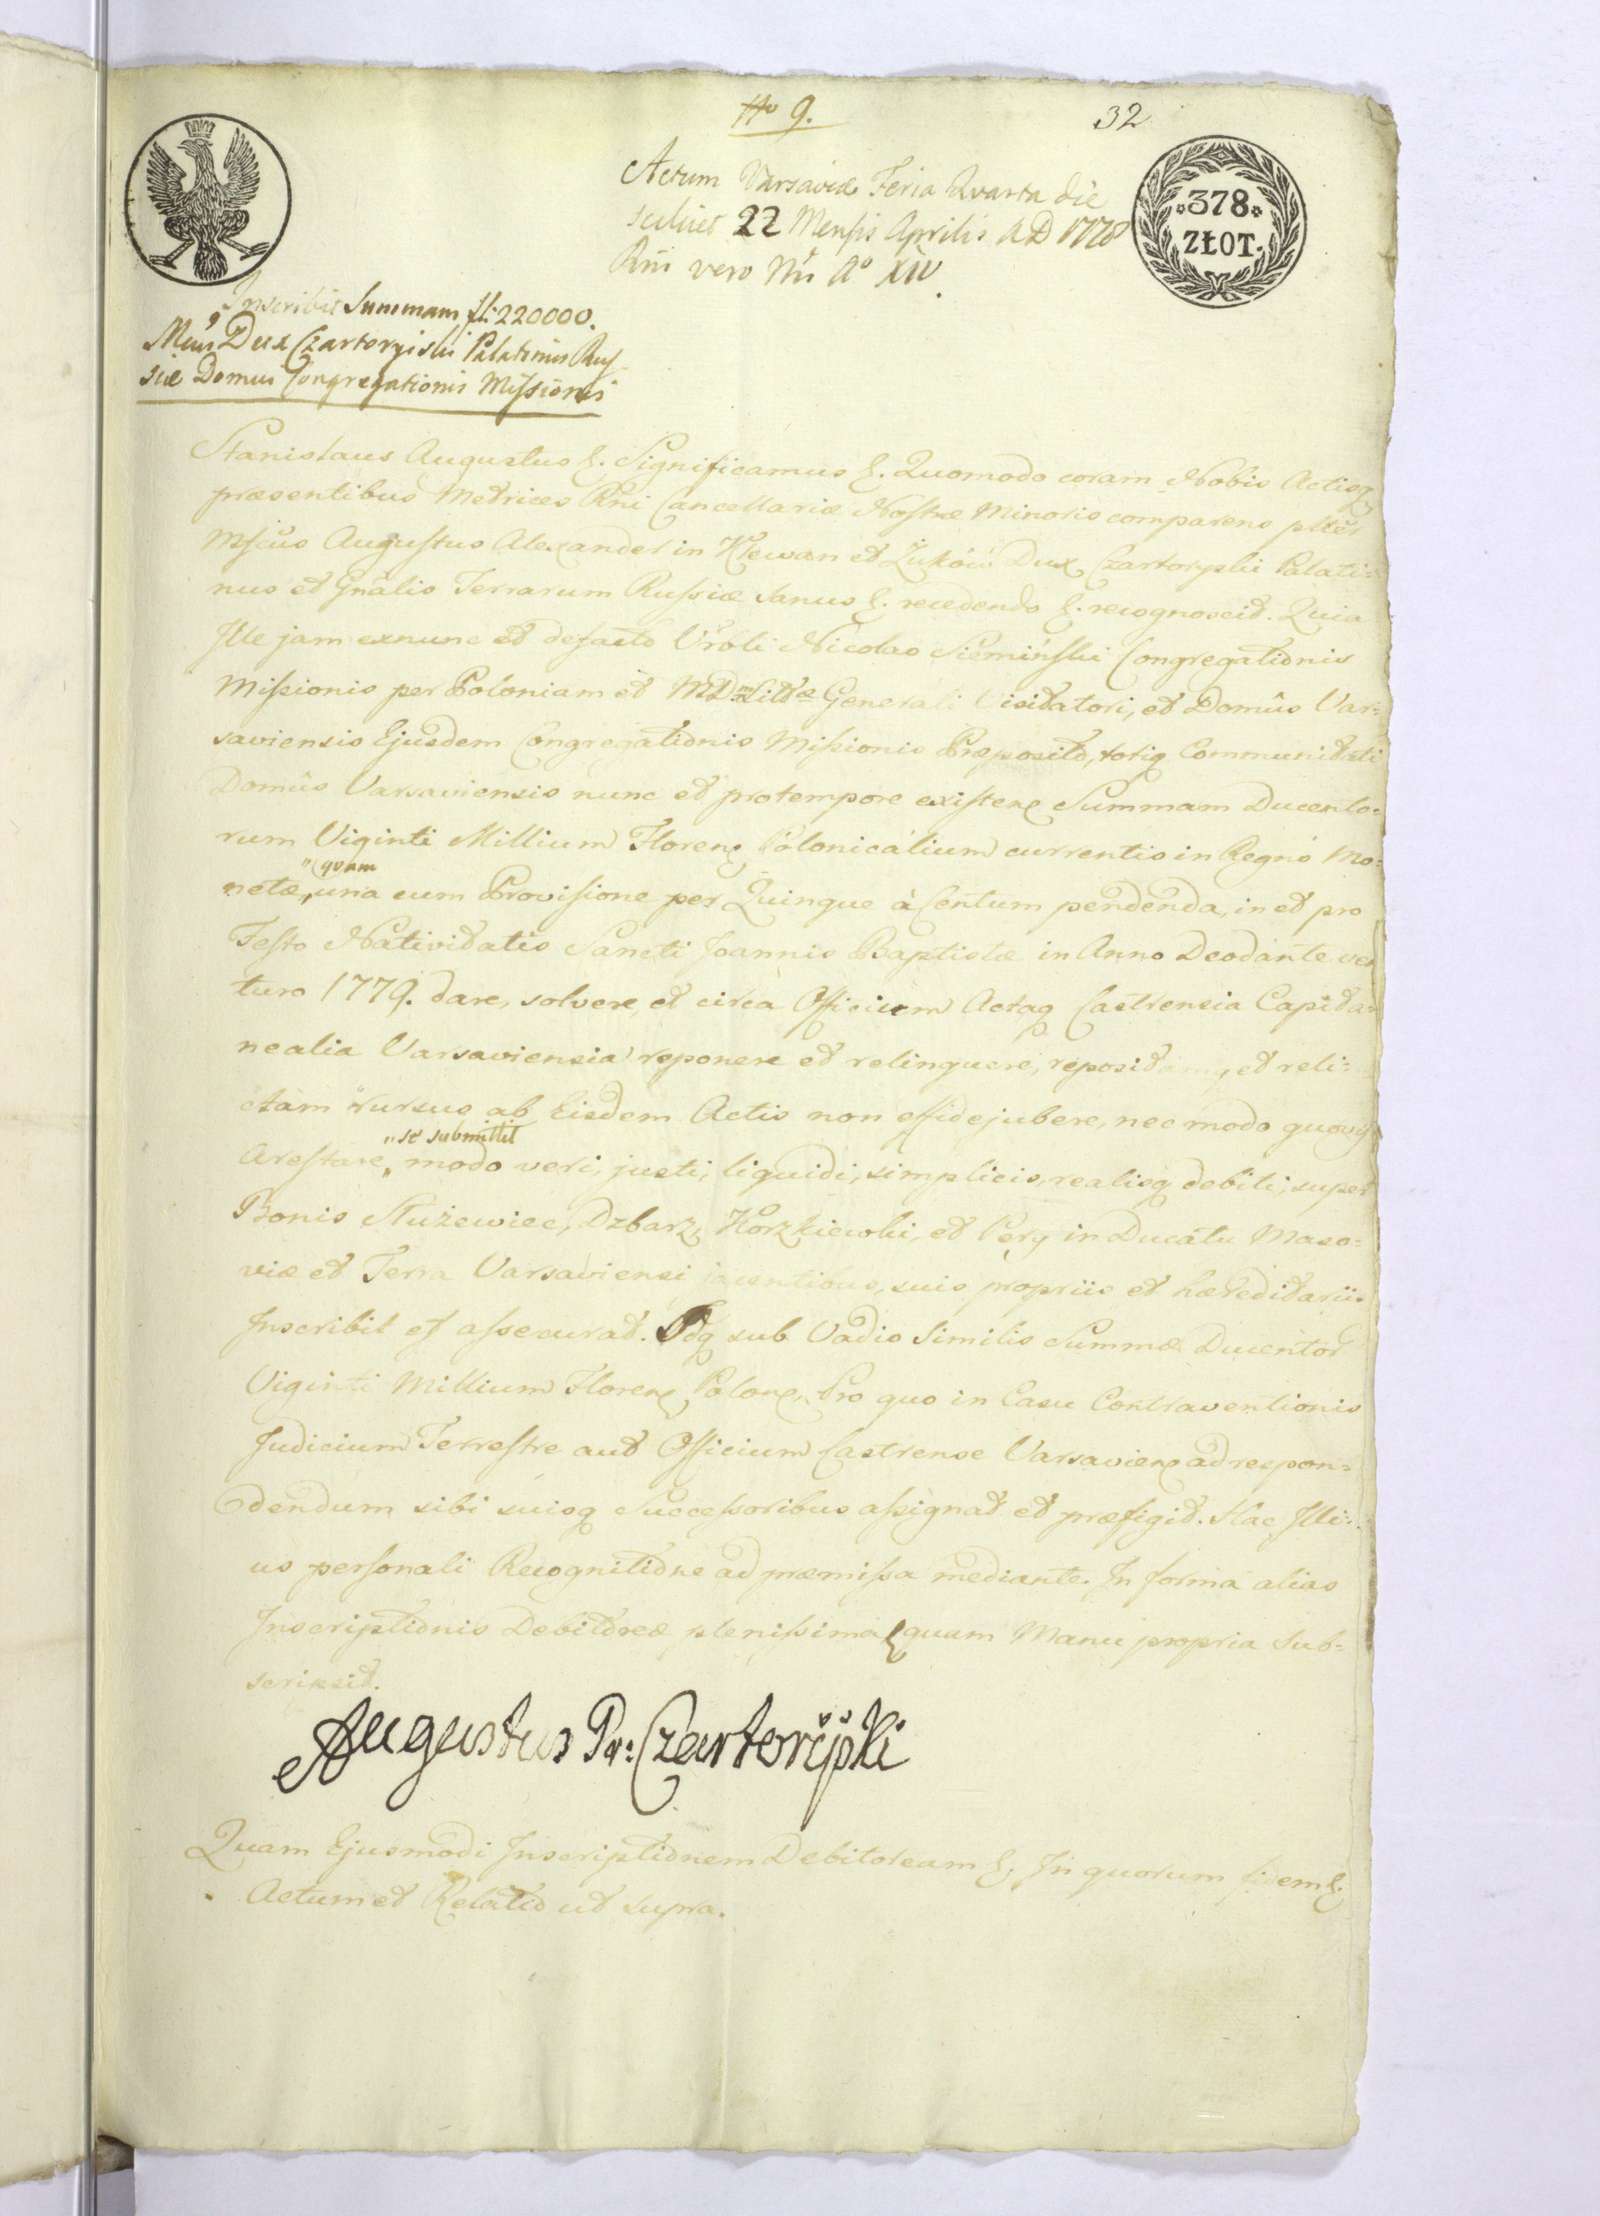 No 9.
32
378
ZŁOT.
Actum Varsaviæ Feria Qvarta die
scilicet 22 Mensis Aprilis A D 1778
Rñi vero Nri Aº XIV.
Inscribit Summam fl: 220000.
Mcus Dux Czartoryiski Palatinus Rus
siæ Domui Congregationis Missionis
Stanislaus Augustus &. Significamus &. Quomodo coram Nobis Actisq
præsentibus Metrices Rñi Cancellariæ Nostræ Minoris comparens plter
Mficus Augustus Alexander in Klewan et Żuków Dux Czartoryski Palati-
nus et Gnãlis Terrarum Russiæ sanus &. recedendo &. recognoscit. Quia
Ille jam exnunc et defacto Vrõli Nicolao Siemiński Congregationis
Missionis per Poloniam et M D Litt Generali Visitatori, et Domûs Var-
saviensis Ejusdem Congregationis Missionis Præposito, totiq Communitati
Domûs Varsaviensis nunc et protempore existen Summam Ducento-
rum Viginti Millium Floren Polonicalium currentis in Regno Mo-
netæ, "quam una cum Provisione per Quinque à Centum pendenda, in et pro
Festo Nativitatis Sancti Joannis Baptistæ in Anno Deodante ven
turo 1779. dare, solvere, et circa Officium Actaq Castrensia Capita-
nealia Varsaviensia reponere et relinquere, repositam, et reli-
ctam rursus ab Eisdem Actis non effidejubere, nec modo quovis
Arestare, "se submittit modo veri, justi, liquidi, simplicis, realisq debiti, super
Bonis Służewiec, Dzbarz, Korzkiewki, et Pery in Ducatu Maso-
viæ et Terra Varsaviensi jacentibus, suis propriis et hæreditariis
Inscribit et assecurat. Idq sub Vadio Similis Summæ Ducentor
Viginti Millium Floren Polon, Pro quo in Casu Contraventionis
Judicium Terrestre aut Officium Castrense Varsavien ad respon-
dendum sibi suisq Successoribus assignat et præfigit. Hac Illi-
us personali Recognitione ad præmissa mediante. In forma alias
Inscriptionis Debitoreæ plenissima quam Manu propria sub-
scripsit.
Augustus Pr: Czartoryski
Quam Ejusmodi Inscriptionem Debitoream &. In quorum fidem &.
Actum et Relatio ut supra.